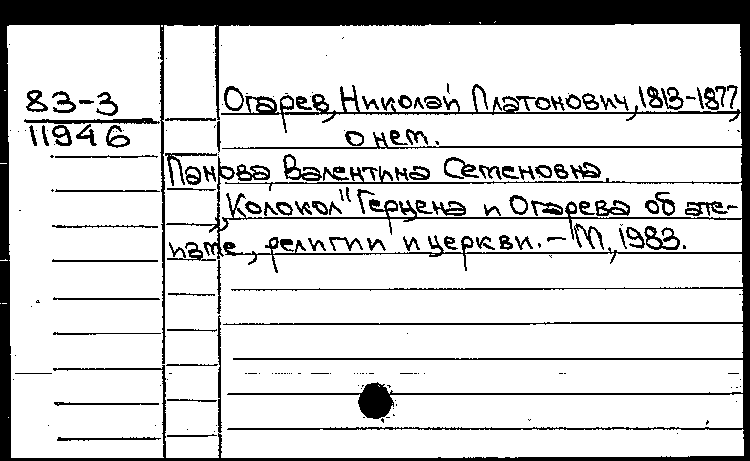 83-3
11946
Огарев, Николай Платонович, 1813-1877,
о нем.
Панова, Валентина Семеновна.
„Колокол" Герцена и Огарева об ате-
изме, религии и церкви. - М., 1983.